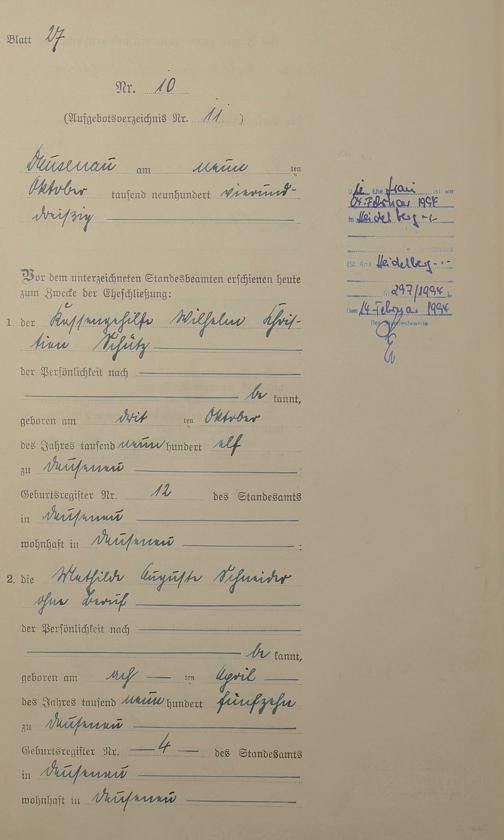 Blatt 27
Nr. 10
(Aufgebotsverzeichnis Nr. 11 )
Dausenau am neun ten
Oktober tausend neunhundert vierund-
dreißig
Vor dem unterzeichneten Standesbeamten erschienen heute
zum Zwecke der Eheschließung:
1. der Kassengehilfe Wilhelm Chris-
tian Schütz
der Persönlichkeit nach
be kannt,
geboren am drit ten Oktober
des Jahres tausend neun hundert elf
zu Dausenau
Geburtsregister Nr. 12 des Standesamts
in Dausenau
wohnhaft in Dausenau ;
2. die Mathilde Auguste Schneider
ohne Beruf
der Persönlichkeit nach
be kannt,
geboren am ach ten April
des Jahres tausend neun hundert fünfzehn
zu Dausenau
Geburtsregister Nr. 4 des Standesamts
in Dausenau
wohnhaft in Dausenau
Die Ehefrau ist am
04. Februar 1994
in Heidelberg
(St. Amt Heidelberg
Nr. 297/1994
Den 14. Februar 1994